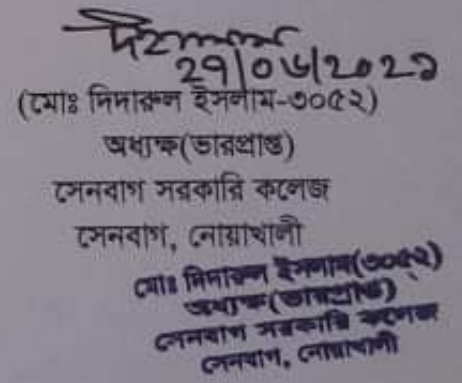 ২৭/০৬/২০২১
(মোঃ দিদারুল ইসলাম-৩০৫২)
অধ্যক্ষ(ভারপ্রাপ্ত)
সেনবাগ সরকারি কলেজ
সেনবাগ, নোয়াখালী
মোঃ দিদারুল ইসলাম(৩০৫২)
অধ্যক্ষ(ভারপ্রাপ্ত)
সেনবাগ সরকারি কলেজ
সেনবাগ, নোয়াখালী